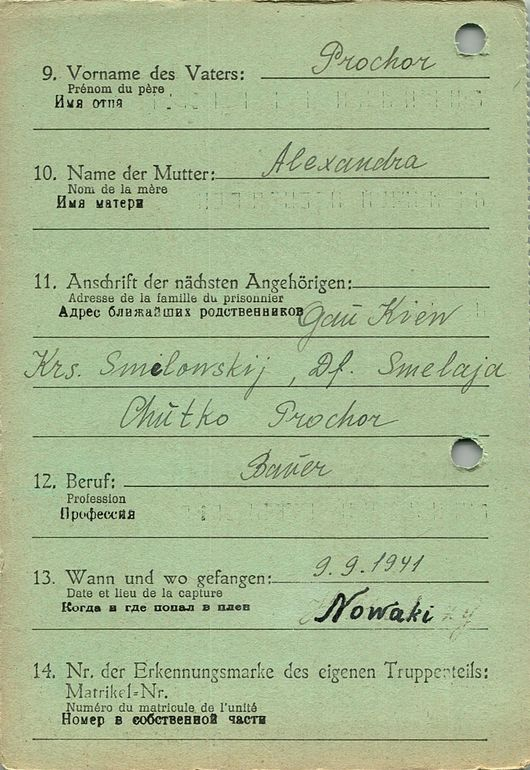 9. Vorname des Vaters: Prochor
Prénom du père
Имя отца
10. Name der Mutter: Alexandra
Nom de la mère
Имя матери
11. Anschrift der nächsten Angehörigen:
Adresse de la famille du prisonnier
Адрес ближайших родственников Gau Kiew
Krs. Smilowskij, Df. Smelaja
Chutko Prochor
12. Beruf: Bauer
Profession
Профессия
13. Wann und wo gefangen: 9.9.1941
Date et lieu de la capture
Когда и где попал в плен Nowaki
14. Nr. der Erkennungsmarke des eigenen Truppenteils:
Matrikel-Nr.
Numéro du matricule de l'unité
Номер в собственной части